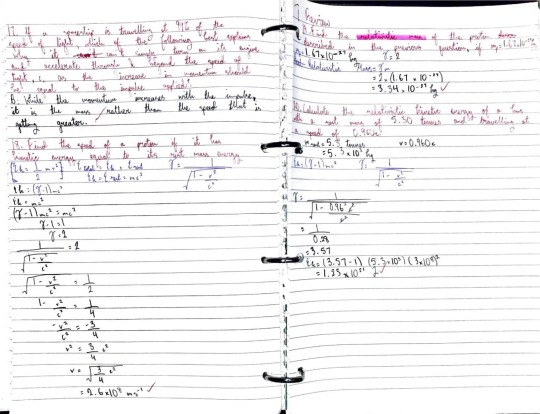 12. If a spaceship is travelling at 99% of the
speed of light, which of the following best explains
why it can't simply turn on its engine
and accelerate through & beyond the speed of
light, as the increase in momentum should
be equal to the impulse applied?
B. While the momentum increases with the impulse,
it is the mass rather than the speed that is
getting greater.
13. Find the speed of a proton if it has
kinetic energy equal to its rest mass energy
Ek = (γ-1)mc²
Ek = mc²
(γ-1)mc² = mc²
γ-1 = 1
γ = 2
1/√(1-v²/c²) = 2
√(1-v²/c²) = 1/2
1-v²/c² = 1/4
-v²/c² = -3/4
v² = 3/4 c²
v = √(3/4 c²)
= 2.6×10⁸ ms⁻¹ ✓
Find the relativistic mass of the proton
described in the previous question, if
1.67×10⁻²⁷ kg γ = 2
Relativistic Mass = γm
= 2×(1.67×10⁻²⁷)
= 3.34×10⁻²⁷ kg ✓
Calculate the relativistic kinetic energy of a bus
with a rest mass of 5.30 tonnes and travelling at
a speed of 0.960c.
= 5.3 tonnes v = 0.960c
= 5.3×10³ kg
Ek = (γ-1)mc² γ = 1/√(1-v²/c²)
γ = 1/√(1-0.96²c²/c²)
= 1/0.28
= 3.57
Ek = (3.57-1)(5.3×10³)(3×10⁸)²
= 1.23×10²¹ J